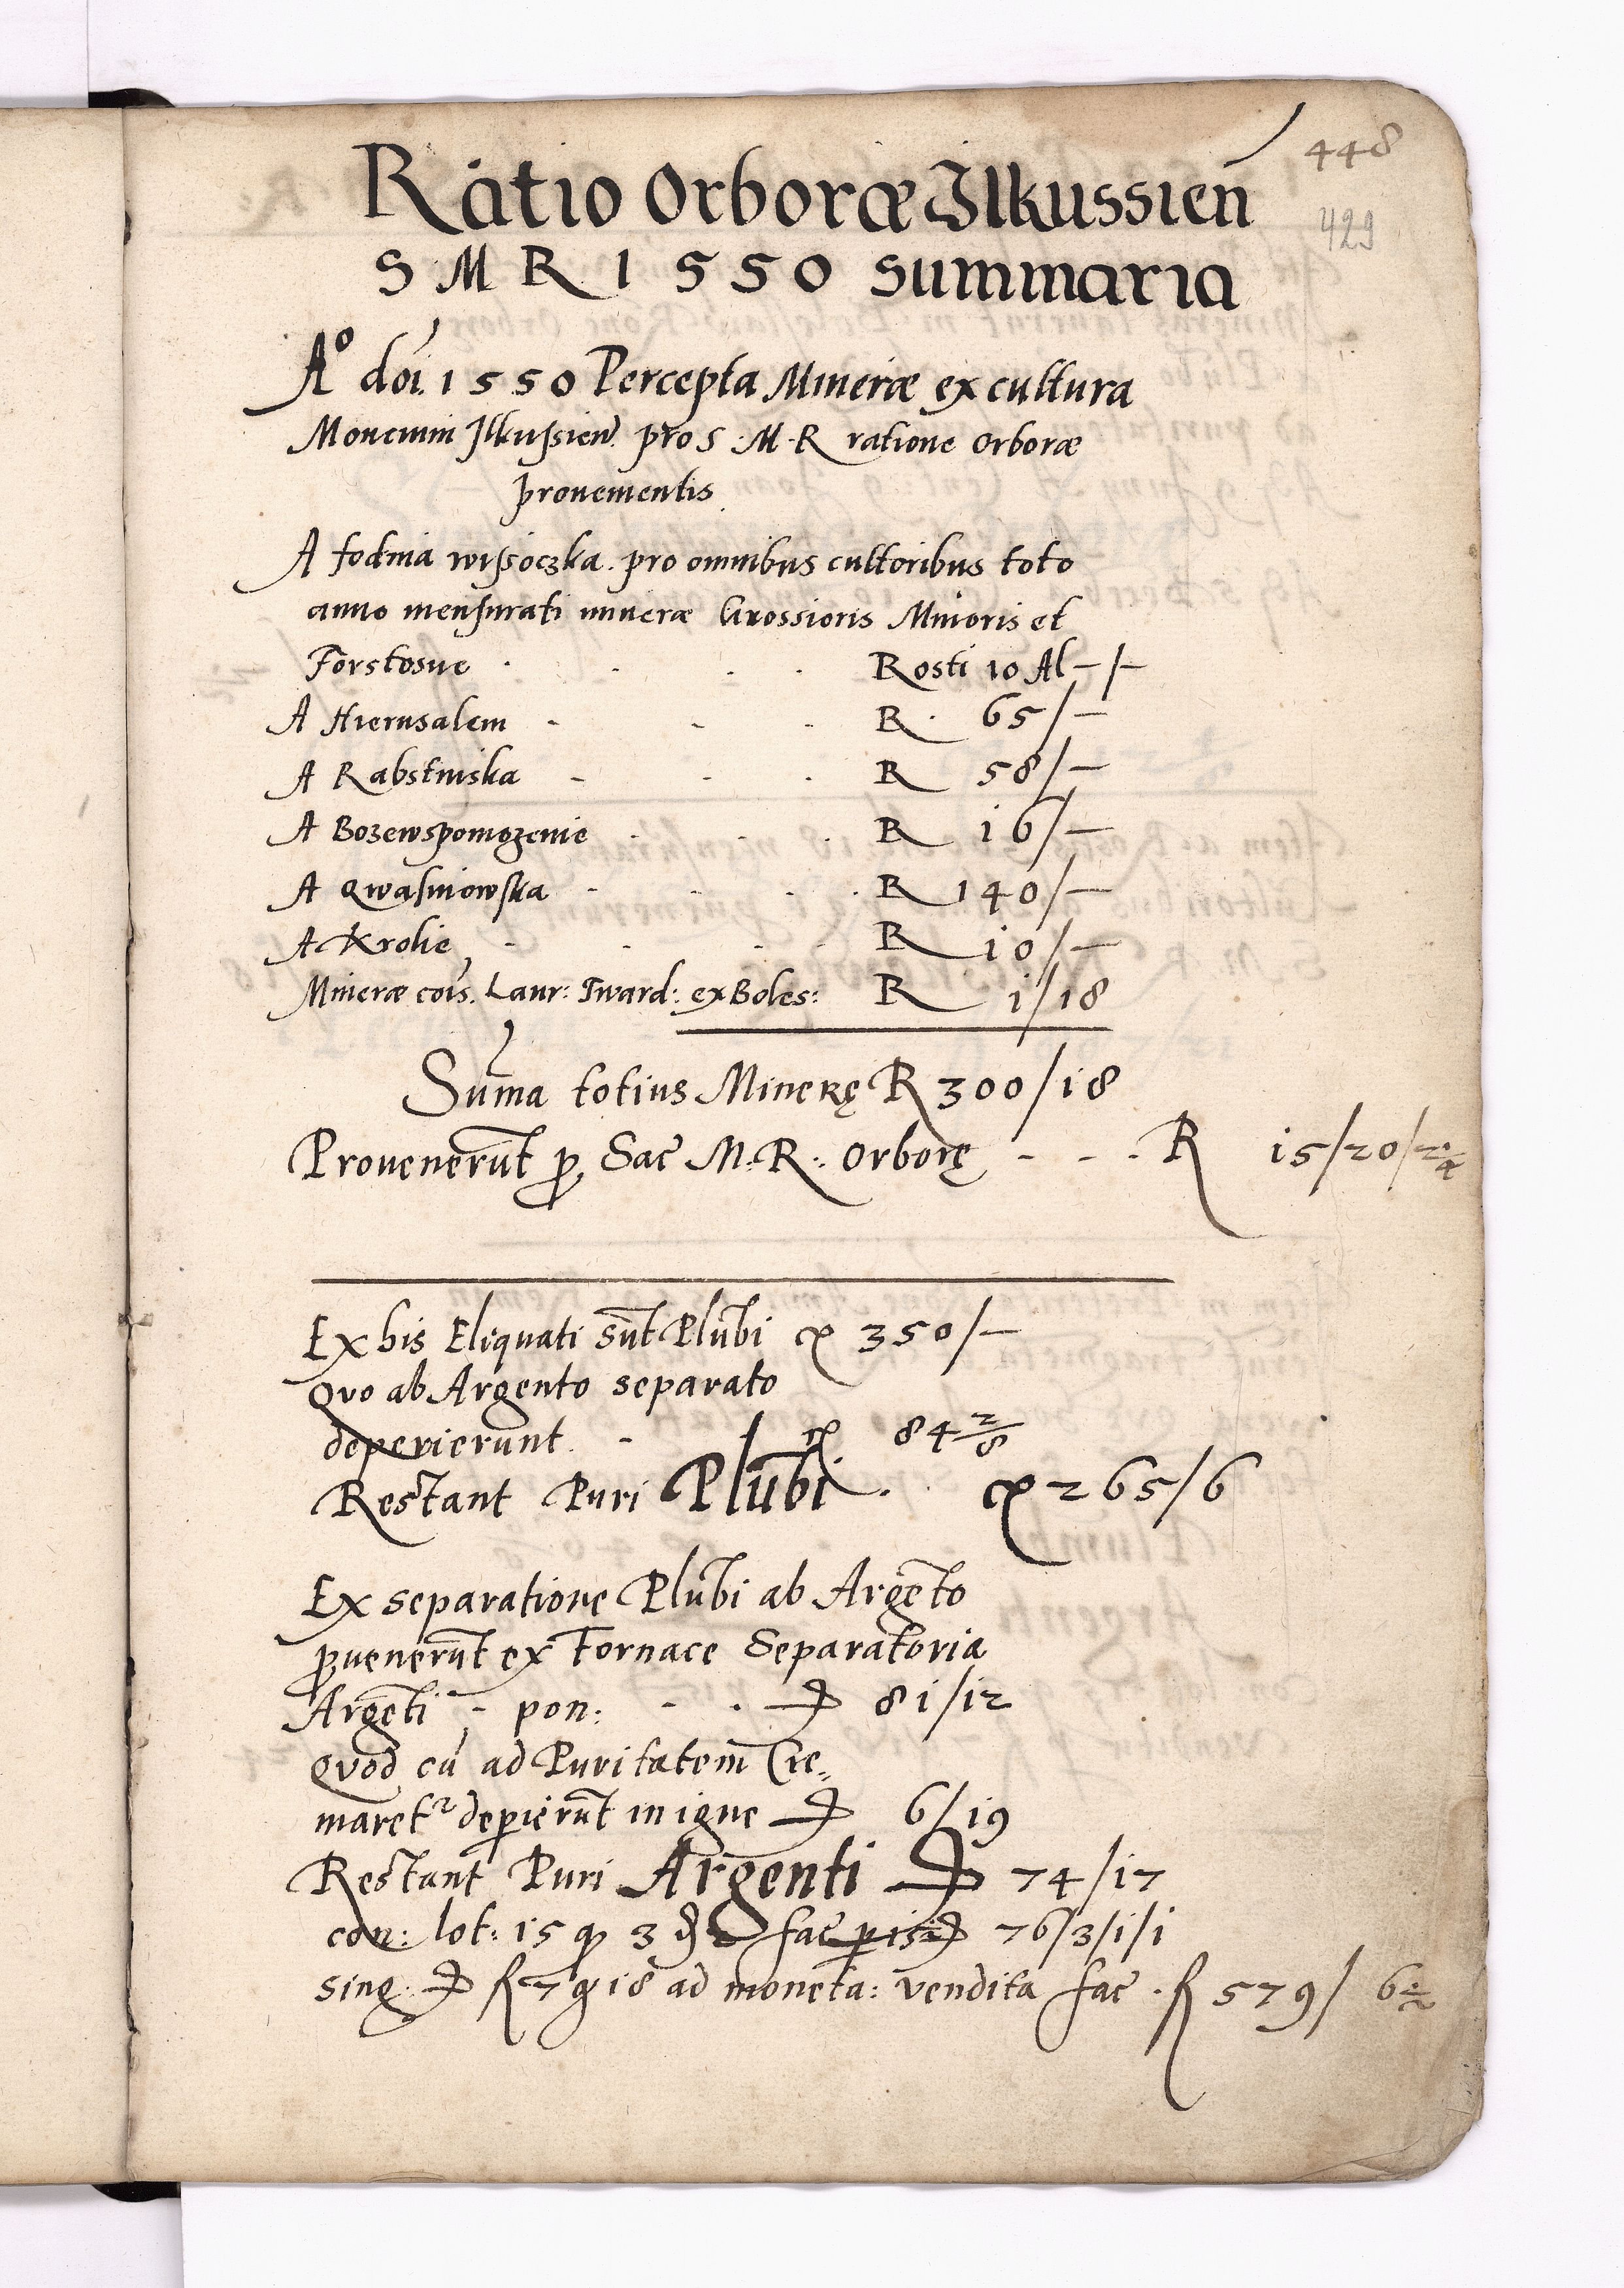 448
429
Ratio Orboræ Ilkussien̄
S M R 1550 summaria
A° doi. 1550 Percepta Mineræ ex cultura
Moncium Ilkussien. pro S. M. R ratione orboræ
prouementis
A fodina wissoczka. pro omnibus cultoribus toto
anno mensurati mineræ Grossioris Minoris et
Forstosue Rosti 10 Al - / -
A Hierusalem - - - R. 65/-
A Rabstinska - - - R 58/-
A Bozewspomozenie R 16/-
A Qwasniowska - - - R 140/-
A Krolie - - - R 10/-
Mineræ cois. Laur: Tward: ex Boles: R 1/18
Suma totius Minerę R 300/18
Prouenerūt p Sac M. R: orborę - - - R 15/20/
Ex his Eliquati sūt Plūbi 350/-
Qvo ab Argento separato
deperierunt. - 84 2/8
Restant Puri Plūbi 265/6
Ex separatione Plūbi ab Argēto
puenerūt ex Fornace Separatoria
Argēti - pon: - . 81/12
Qvod cū ad Puritatem Cre„
maret² deperierūt in igne 6/19
Restant Puri Argenti 74/17
con: lot: 15 q 3 fac pisi 76/3/1/1
sing: 7 g 18 ad moneta: vendita fac. 579/ 6